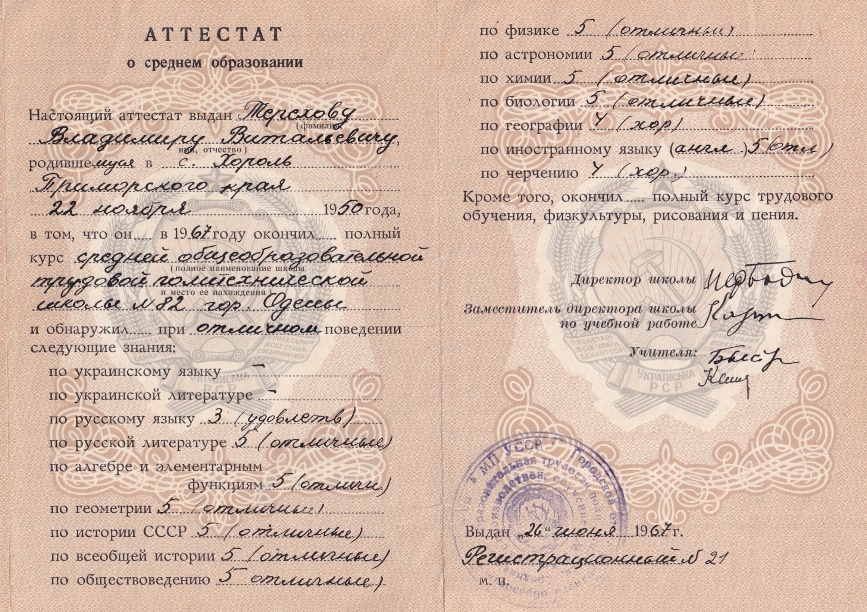 АТТЕСТАТ
о среднем образовании
Настоящий аттестат выдан Терехову
(фамилия)
Владимиру Витальевичу,
имя, отчество)
родившемуся в с. Хороль
Приморского края
22 ноября 1950 года,
в том, что он в 1967 году окончил полный
курс средней общеобразовательной
(полное наименование школы
трудовой политехнической
и место ее нахождения)
школы №82 гор. Одессы
и обнаружил при отличном поведении
следующие знания:
по украинскому языку –
по украинской литературе –
по русскому языку 3 (удовлетв)
по русской литературе 5 (отличные)
по алгебре и элементарным
функциям 5 (отличн)
по геометрии 5 (отличные)
по истории СССР 5 (отличные)
по всеобщей истории 5 (отличные)
по обществоведению 5 отличные)
по физике 5 (отличные)
по астрономии 5 (отличные
по химии 5 (отличные)
по биологии 5 (отличные)
по географии 4 (хор)
по иностранному языку (англ.) 5 (отл)
по черчению 4 (хор.)
Кроме того, окончил полный курс трудового
обучения, физкультуры, рисования и пения.
Директор школы
Заместитель директора школы
по учебной работе
Учителя:
УКРАЇНСЬКА
РСР
УКРАЇНСЬКА
РСР
МП УСОР Городской
Выдан „26" июня 1967 г.
Регистрационный № 21
м. п.